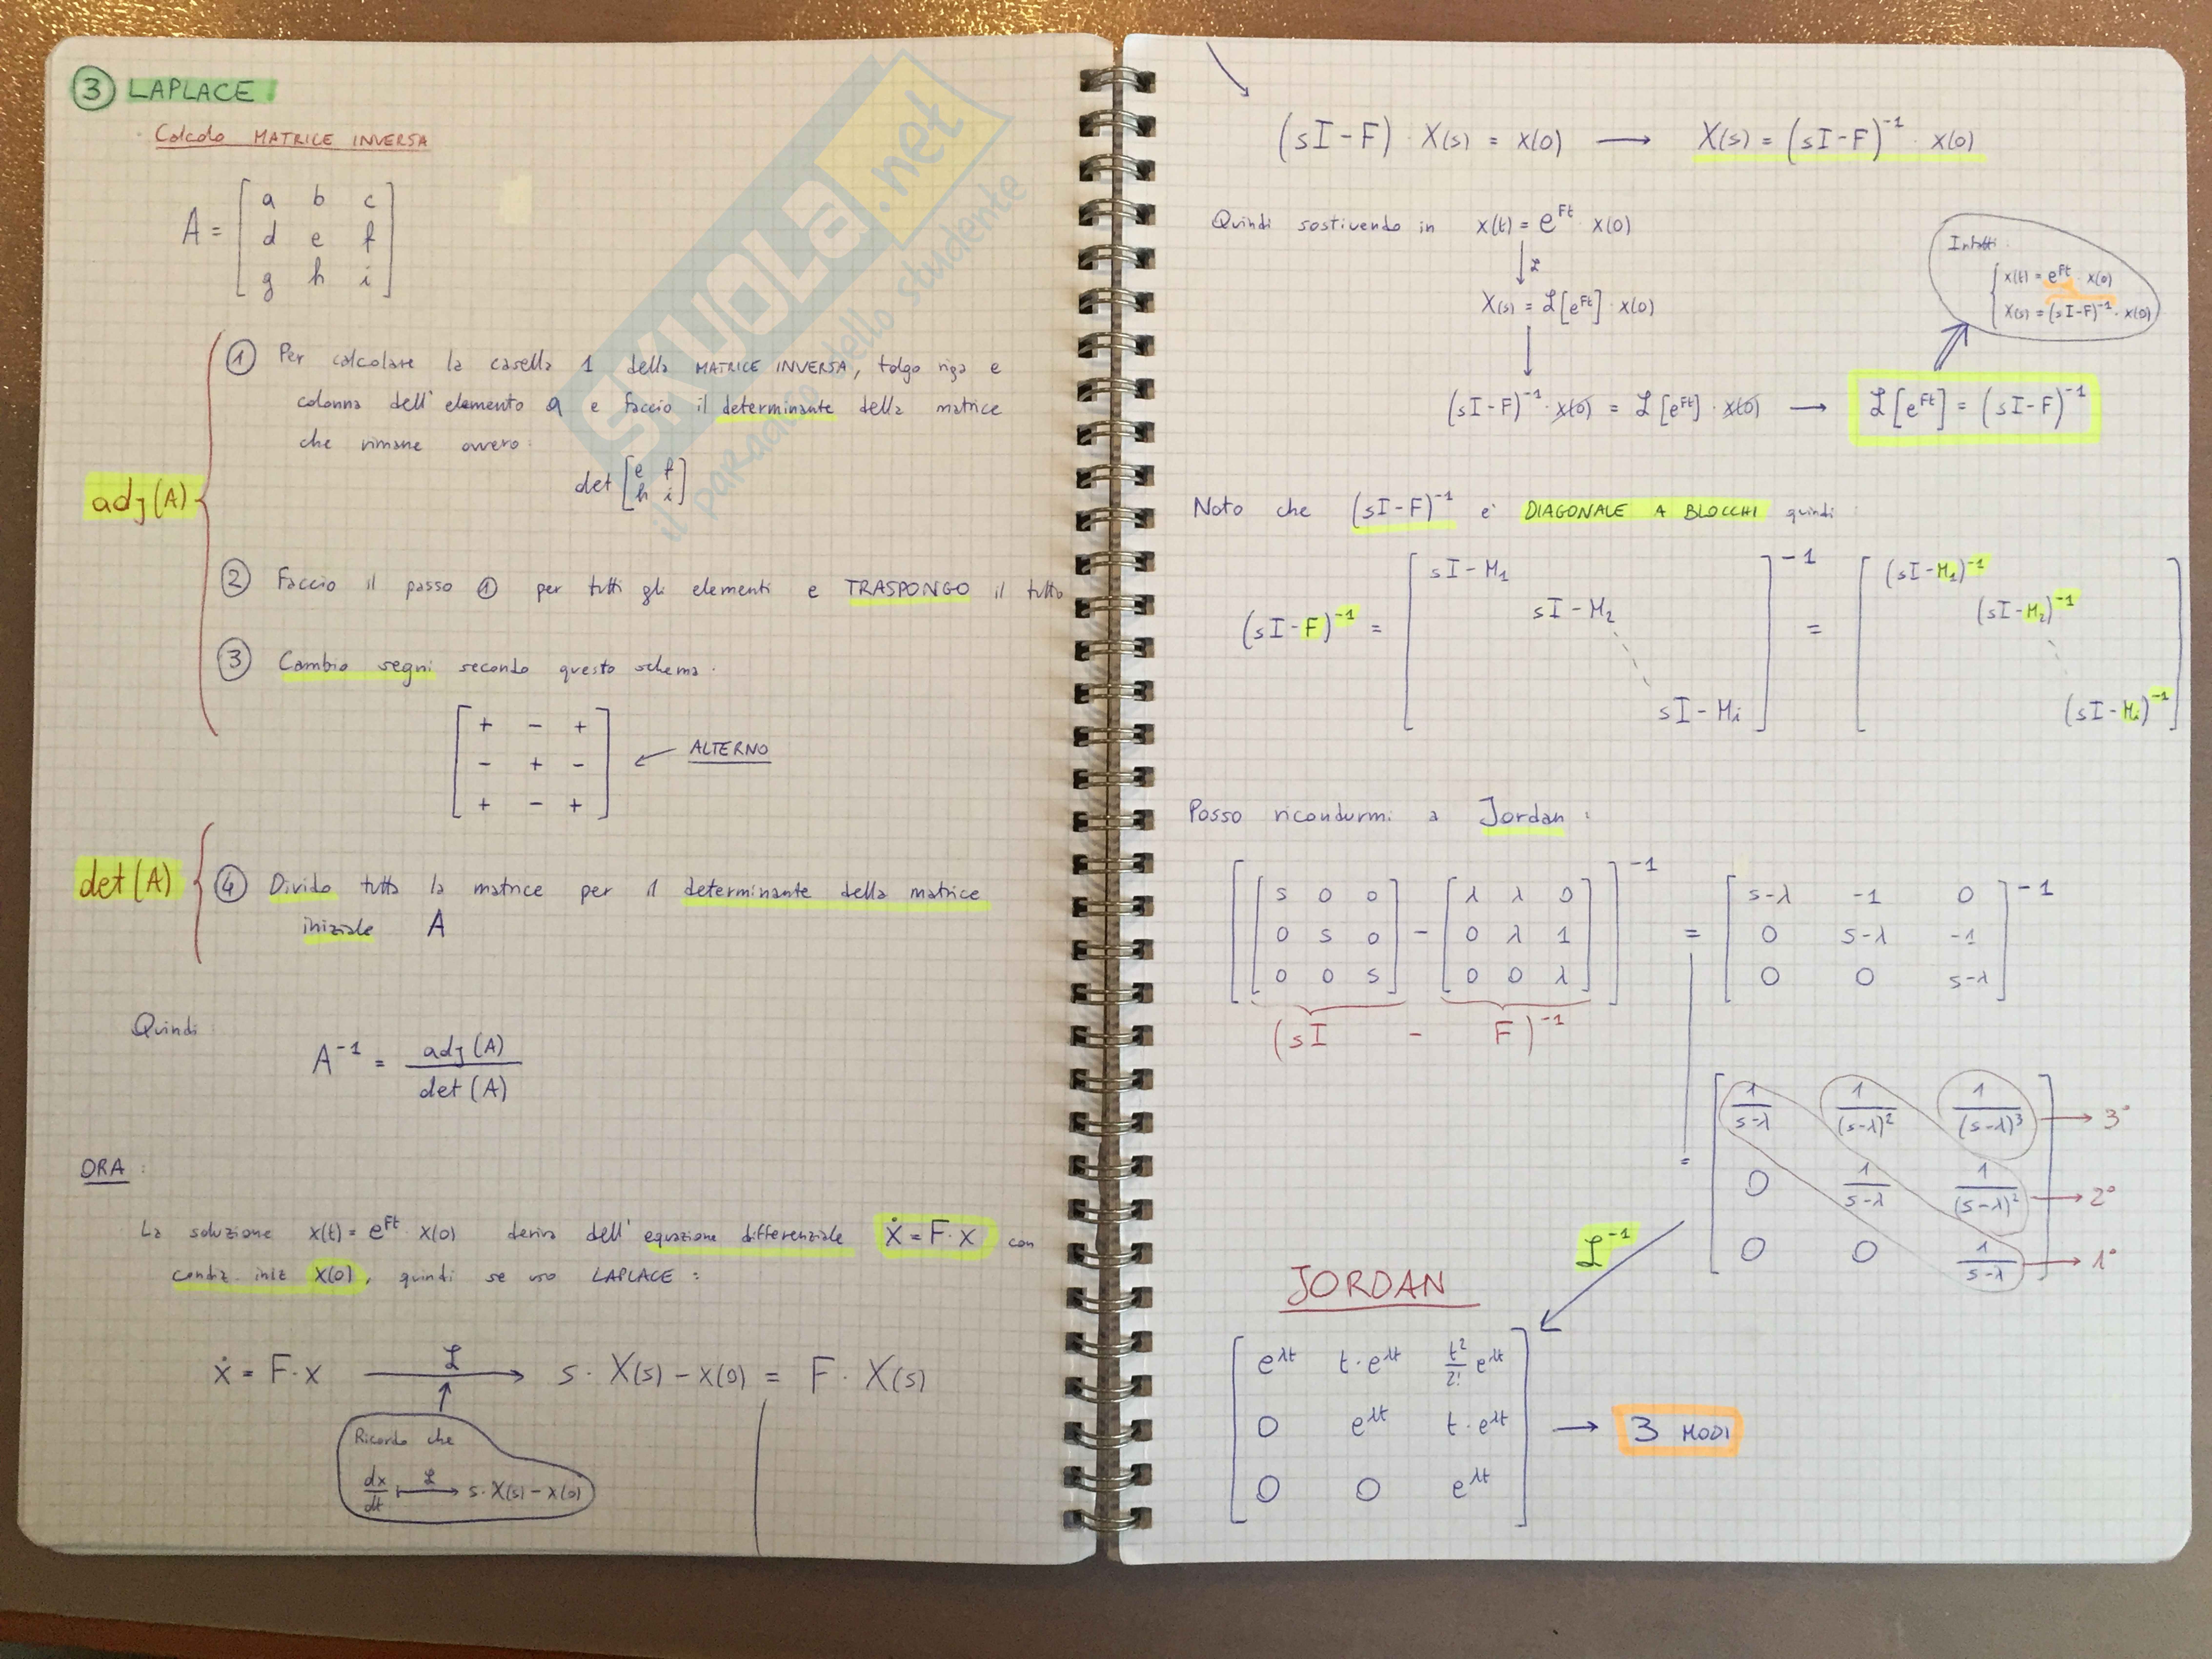 3 LAPLACE
Calcolo MATRICE INVERSA
A = [ a b c
d e f
g h i ]
adj(A)
1 Per calcolare la casella 1 della MATRICE INVERSA, tolgo riga e
colonna dell'elemento a e faccio il determinante della matrice
che rimane ovvero:
det [ e f
h i ]
2 Faccio il passo 1 per tutti gli elementi e TRASPONGO il tutto
3 Cambio segni secondo questo schema.
[ + - +
- + -
+ - + ]
ALTERNO
det(A)
4 Divido tutta la matrice per il determinante della matrice
iniziale A
Quindi
A⁻¹ = adj(A) / det(A)
ORA:
La soluzione x(t) = e^Ft · x(0) deriva dell'equazione differenziale ẋ = F·x con
condiz. iniz x(0), quindi se uso LAPLACE:
ẋ = F·x —ℒ→ s·X(s) - x(0) = F·X(s)
Ricordo che
dx/dt —ℒ→ s·X(s) - x(0)
(sI-F)·X(s) = x(0) → X(s) = (sI-F)⁻¹ · x(0)
Quindi sostivendo in x(t) = e^Ft · x(0)
↓ℒ
X(s) = ℒ[e^Ft]·x(0)
(sI-F)⁻¹·x(0) = ℒ[e^Ft]·x(0) → ℒ[e^Ft] = (sI-F)⁻¹
Infatti:
x(t) = e^Ft · x(0)
X(s) = (sI-F)⁻¹ · x(0)
Noto che (sI-F)⁻¹ e' DIAGONALE A BLOCCHI quindi:
(sI-F)⁻¹ = [ sI-M₁
sI-M₂
sI-Mᵢ ]⁻¹ = [ (sI-M₁)⁻¹
(sI-M₂)⁻¹
(sI-Mᵢ)⁻¹ ]
Posso ricondurmi a Jordan:
[ [ s 0 0 ] - [ λ λ 0 ] ]⁻¹ = [ s-λ -1 0 ]⁻¹
0 s 0 0 λ 1 0 s-λ -1
0 0 s 0 0 λ 0 0 s-λ
(sI - F)⁻¹
= [ 1/(s-λ) 1/(s-λ)² 1/(s-λ)³ → 3°
0 1/(s-λ) 1/(s-λ)² → 2°
0 0 1/(s-λ) ] → 1°
ℒ⁻¹
JORDAN
[ e^λt t·e^λt t²/2! e^λt
0 e^λt t·e^λt → 3 MODI
0 0 e^λt ]
SKUOLA.net
il paradiso dello studente